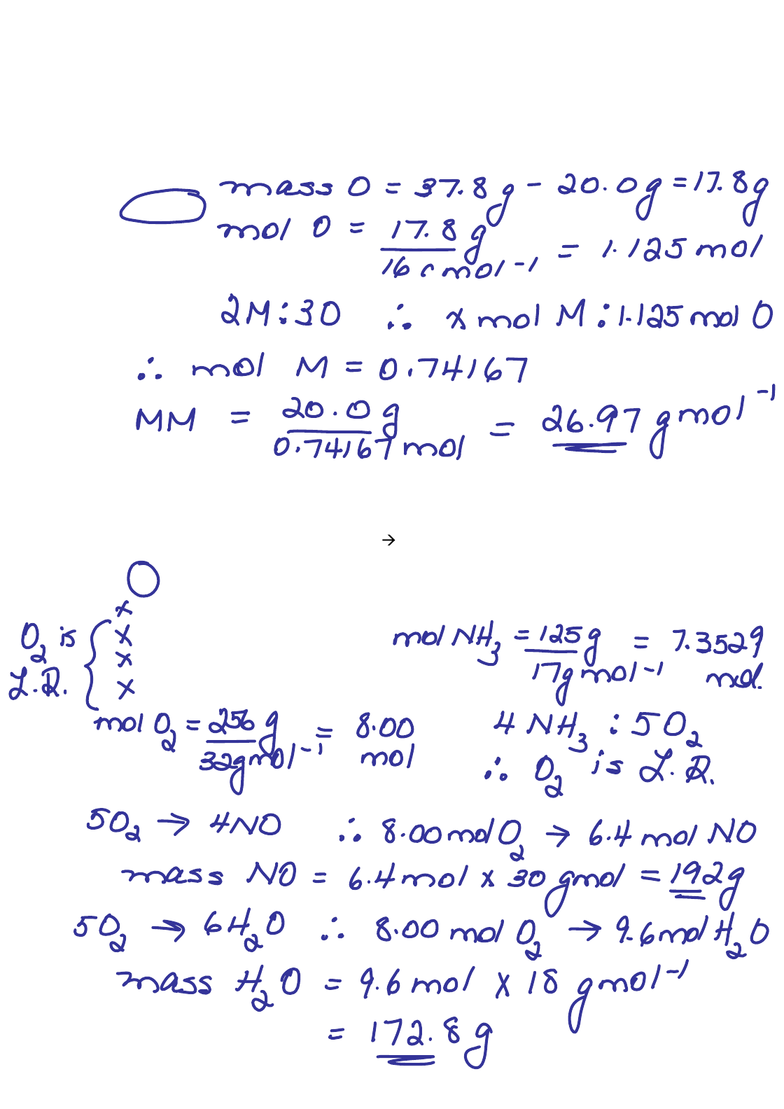 mass O = 37.8g - 20.0g = 17.8g
mol O = 17.8g / 16 c mol⁻¹ = 1.125 mol
2M : 3O ∴ x mol M : 1.125 mol O
∴ mol M = 0.74167
MM = 20.0g / 0.74167 mol = 26.97 g mol⁻¹
→
O₂ is
L.R.
mol NH₃ = 125g / 17g mol⁻¹ = 7.3529 mol.
mol O₂ = 256g / 32g mol⁻¹ = 8.00 mol
4 NH₃ : 5O₂
∴ O₂ is L.R.
5O₂ → 4NO ∴ 8.00 mol O₂ → 6.4 mol NO
mass NO = 6.4 mol x 30 g mol = 192g
5O₂ → 6H₂O ∴ 8.00 mol O₂ → 9.6 mol H₂O
mass H₂O = 9.6 mol x 18 g mol⁻¹
= 172.8g